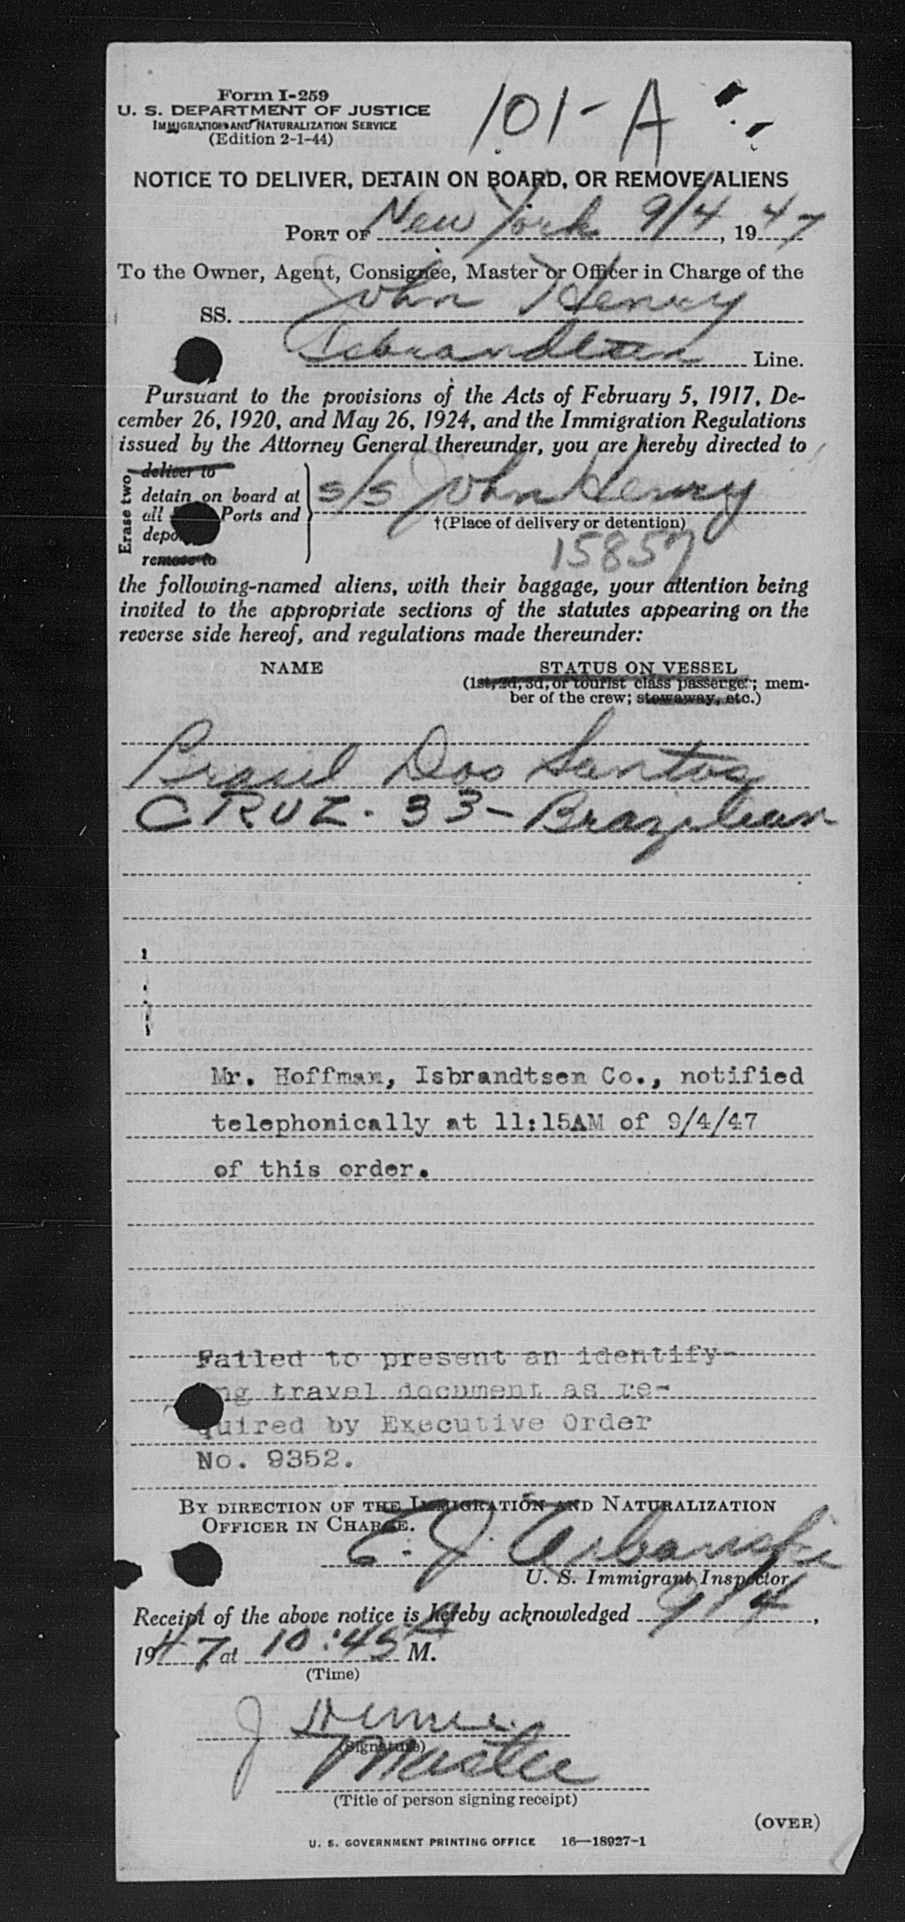 Form I-259
U. S. DEPARTMENT OF JUSTICE
IMMIGRATION AND NATURALIZATION SERVICE
(Edition 2-1-44)
101-A
NOTICE TO DELIVER, DETAIN ON BOARD, OR REMOVE ALIENS
PORT OF New York 9/4, 1947
To the Owner, Agent, Consignee, Master or Officer in Charge of the
SS. John Henry
Isbrandtsen Line.
Pursuant to the provisions of the Acts of February 5, 1917, De-
cember 26, 1920, and May 26, 1924, and the Immigration Regulations
issued by the Attorney General thereunder, you are hereby directed to
Erase two
deliver to
detain on board at
all Ports and
remove to
s/s John Henry
†(Place of delivery or detention)
15857
the following-named aliens, with their baggage, your attention being
invited to the appropriate sections of the statutes appearing on the
reverse side hereof, and regulations made thereunder:
NAME STATUS ON VESSEL
(1st, 2d, 3d, or tourist class passenger; mem-
ber of the crew; stowaway, etc.)
Brasil Dos Santos
CRUZ. 33- Brazilian
Mr. Hoffman, Isbrandtsen Co., notified
telephonically at 11:15AM of 9/4/47
of this order.
Failed to present an identify-
ing travel document as re-
quired by Executive Order
No. 9352.
BY DIRECTION OF THE IMMIGRATION AND NATURALIZATION
OFFICER IN CHARGE.
E. J. Urbanski
U. S. Immigrant Inspector
Receipt of the above notice is hereby acknowledged 9/4,
1947 at 10:45 A M.
(Time)
J
(Signature)
Master
(Title of person signing receipt)
(OVER)
U. S. GOVERNMENT PRINTING OFFICE 16—18927-1